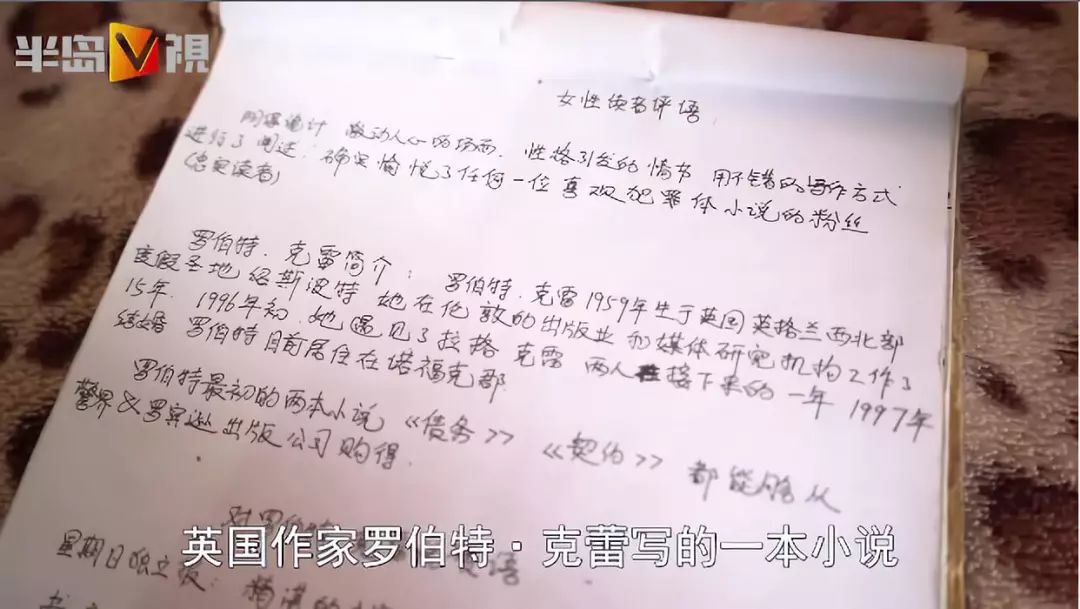 半岛V視
女性读者评语
阴谋诡计 激动人心的场面. 性格引发的情节 用不错的写作方式
进行了阐述: 确实愉悦了任何一位喜欢犯罪体小说的粉丝
(忠实读者)
罗伯特.克雷简介: 罗伯特.克雷1959年生于英国英格兰西北部
度假圣地绍斯波特 她在伦敦的出版业和媒体研究机构工作了
15年. 1996年初.她遇见了拉格 克雷 两人接下来的一年 1997年
结婚 罗伯特目前居住在诺福克郡
罗伯特最初的两本小说《债务》《契约》 都能够从
警界&罗宾逊出版公司购得.
对罗伯特 语
星期日独立报: 精湛的
英国作家罗伯特·克蕾写的一本小说